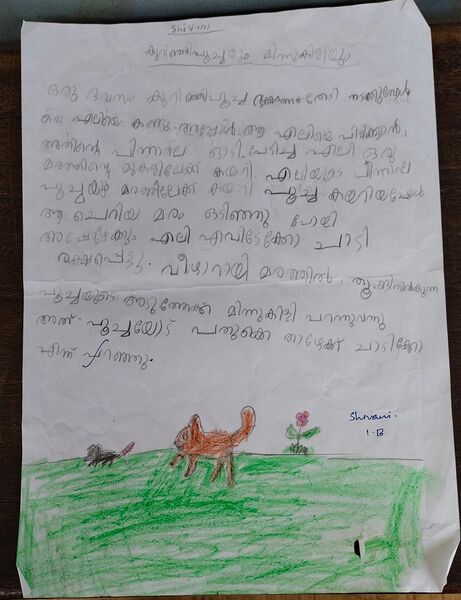 Shivani
കുറിഞ്ഞിപൂച്ചയും മിന്നുകിളിയും
ഒരു ദിവസം കുറിഞ്ഞിപൂച്ച ഭക്ഷണം തേടി നടക്കുമ്പോൾ
ഒരു എലിയെ കണ്ടു. അപ്പോൾ ആ എലിയെ പിടിക്കാൻ
അതിന്റെ പിന്നാലെ ഓടി. പേടിച്ച എലി ഒരു
മരത്തിന്റെ മുകളിലേക്ക് കയറി. എലിയുടെ പിന്നിലെ
പൂച്ചയും മരത്തിലേക്ക് കയറി പൂച്ച കയറിയപ്പോൾ
ആ ചെറിയ മരം ഒടിഞ്ഞു പോയി
അപ്പോഴേക്കും എലി എവിടേക്കോ ചാടി
രക്ഷപ്പെട്ടു. വീഴാറായി മരത്തിൽ തൂങ്ങിനിൽക്കുന്ന
പൂച്ചയുടെ അടുത്തേക്ക് മിന്നുകിളി പറന്നുവന്നു
അത് പൂച്ചയോട് പതുക്കെ താഴേക്ക് ചാടിക്കോ
എന്ന് പറഞ്ഞു.
Shivani.
1.B